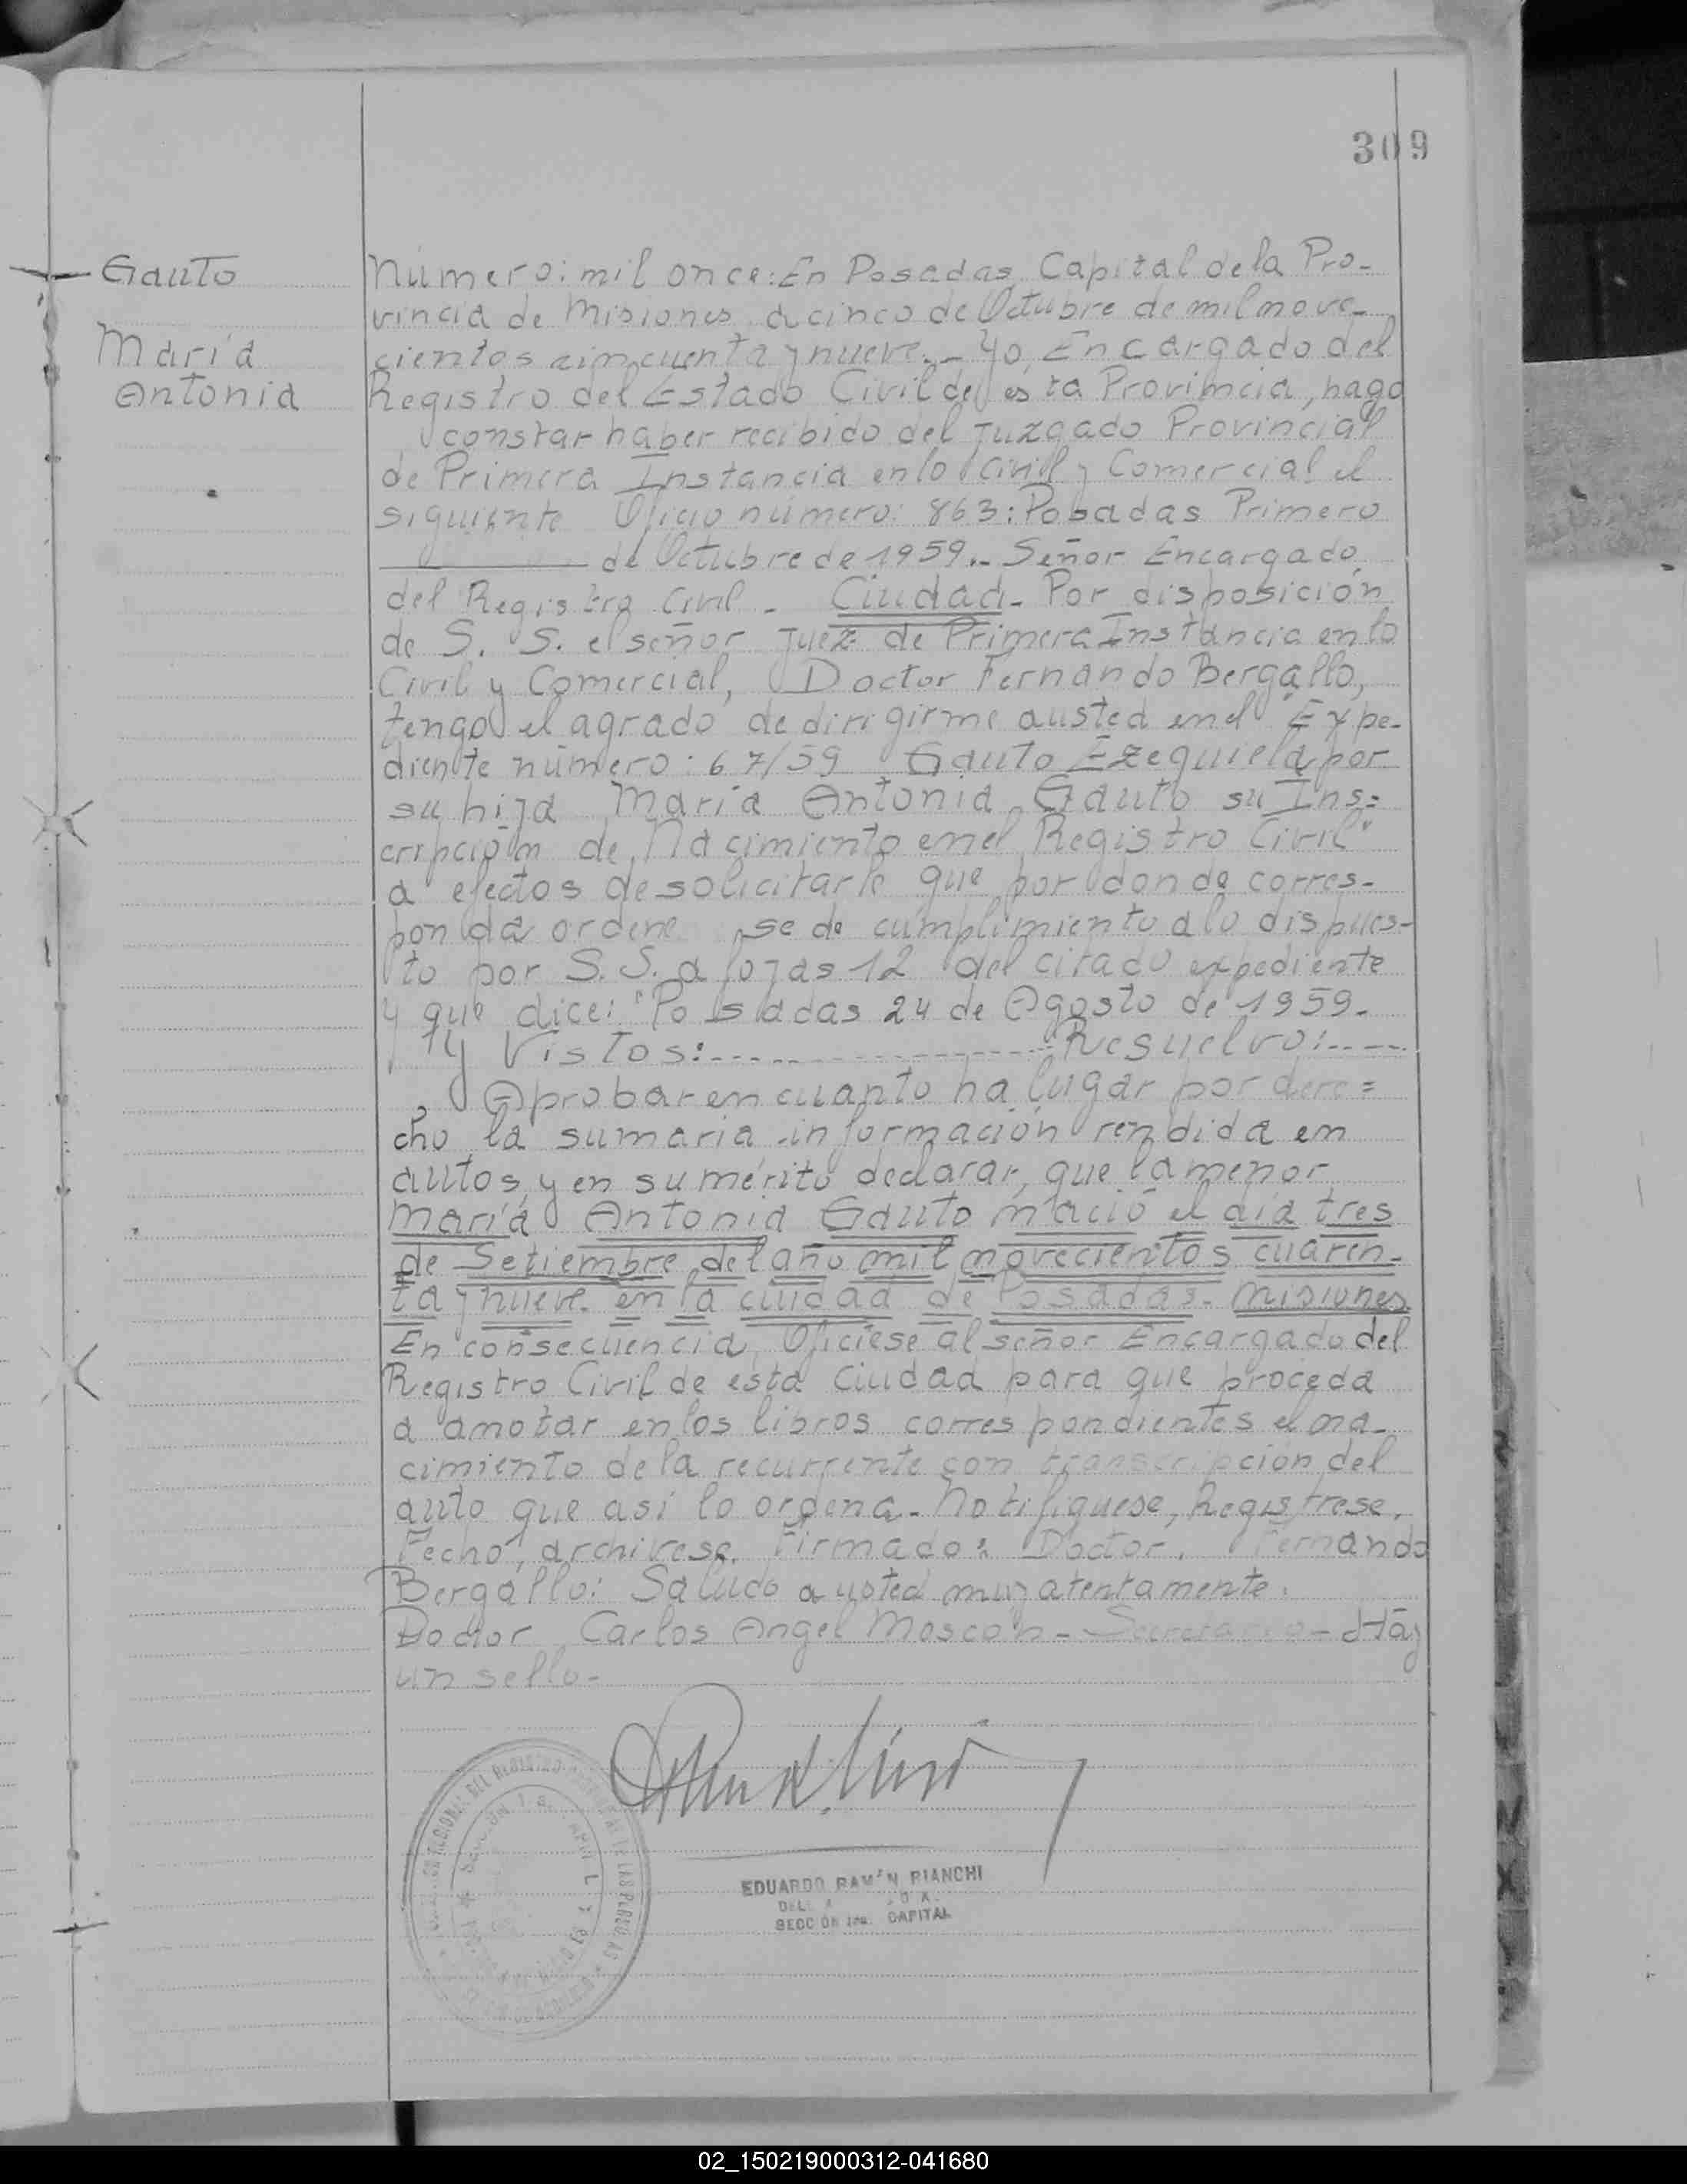 309
Gauto
María
Antonia
Número: mil once: En Posadas, Capital de la Pro-
vincia de Misiones, a cinco de Octubre de mil nove-
cientos cincuenta y nueve.- Yo, Encargado del
Registro del Estado Civil de esta Provincia, hago
constar haber recibido del Juzgado Provincial
de Primera Instancia en lo Civil y Comercial el
siguiente Oficio número: 863: Posadas Primero
de Octubre de 1959.- Señor Encargado
del Registro Civil - Ciudad - Por disposición
de S. S. el señor Juez de Primera Instancia en lo
Civil y Comercial, Doctor Fernando Bergallo,
tengo el agrado de dirigirme a usted en el "Expe-
diente número: 67/59 Gauto Ezequiela por
su hija María Antonia Gauto su Ins=
cripción de Nacimiento en el Registro Civil"
a efectos de solicitarle que por donde corres-
ponda ordene se de cumplimiento a lo dispues-
to por S.S. a fojas 12 del citado expediente
y que dice: "Posadas 24 de Agosto de 1959.
Y Vistos:------------------Resuelvo:----
Aprobar en cuanto ha lugar por dere=
cho la sumaria información rendida en
autos, y en su mérito declarar, que la menor
María Antonia Gauto nació el día tres
de Setiembre del año mil novecientos cuaren-
ta y nueve en la ciudad de Posadas- Misiones
En consecuencia, Ofíciese al señor Encargado del
Registro Civil de esta Ciudad para que proceda
a anotar en los libros correspondientes el na-
cimiento de la recurrente con transcripción del
auto que así lo ordena- Notifíquese, Regístrese,
Fecho, archívese. Firmado: Doctor. Fernando
Bergallo: Saludo a usted muy atentamente.
Doctor Carlos Angel Moscón - Secretario - Hay
un sello-
EDUARDO RAMÓN BIANCHI
SECCIÓN 1ra. CAPITAL
02_150219000312-041680